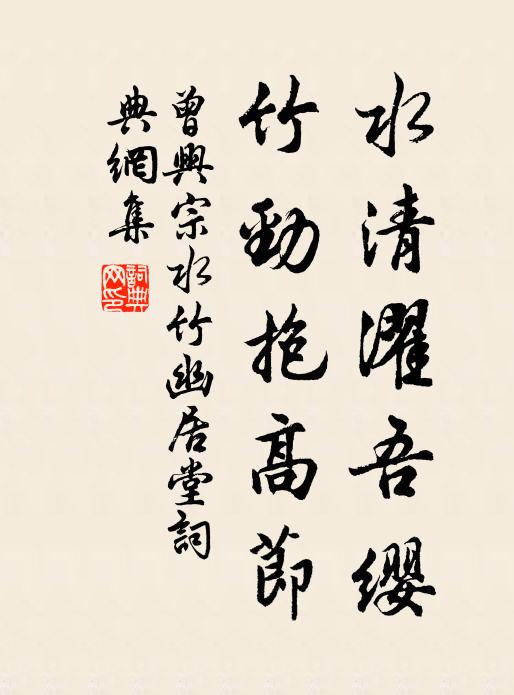 水清濯吾纓
竹勁抱高節
曾興宗水竹幽居堂詞
典網集
詞典網印